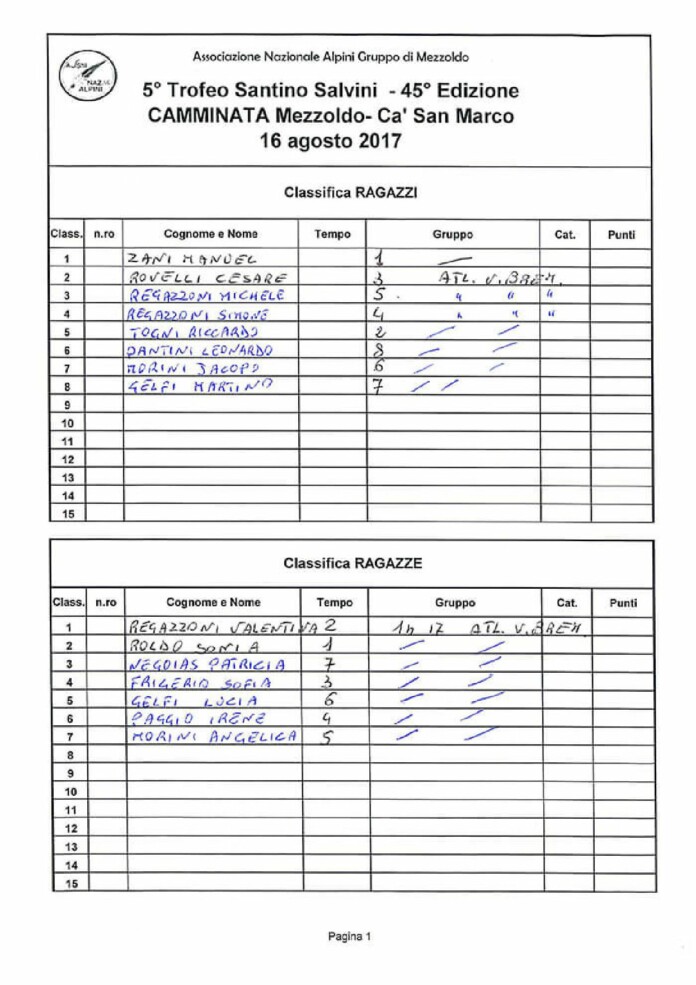 Associazione Nazionale Alpini Gruppo di Mezzoldo
5° Trofeo Santino Salvini - 45° Edizione
CAMMINATA Mezzoldo- Ca' San Marco
16 agosto 2017
Classifica RAGAZZI
Class. n.ro Cognome e Nome Tempo Gruppo Cat. Punti
1 ZANI MANUEL 1 —
2 ROVELLI CESARE 3 ATL. V. BREM.
3 REGAZZONI MICHELE 5 . " " "
4 REGAZZONI SIMONE 4 " " "
5 TOGNI RICCARDO 2 — —
6 DANTINI LEONARDO 8 — —
7 MORINI JACOPO 6 — —
8 GELFI MARTINO 7 — —
9
10
11
12
13
14
15
Classifica RAGAZZE
Class. n.ro Cognome e Nome Tempo Gruppo Cat. Punti
1 REGAZZONI VALENTINA 2 1h 17 ATL. V. BREM.
2 ROLDO SONIA 1 — —
3 NEGOIAS PATRICIA 7 — —
4 FRIGERIO SOFIA 3 — —
5 GELFI LUCIA 6 — —
6 PAGGIO IRENE 4 — —
7 MORINI ANGELICA 5 — —
8
9
10
11
12
13
14
15
Pagina 1